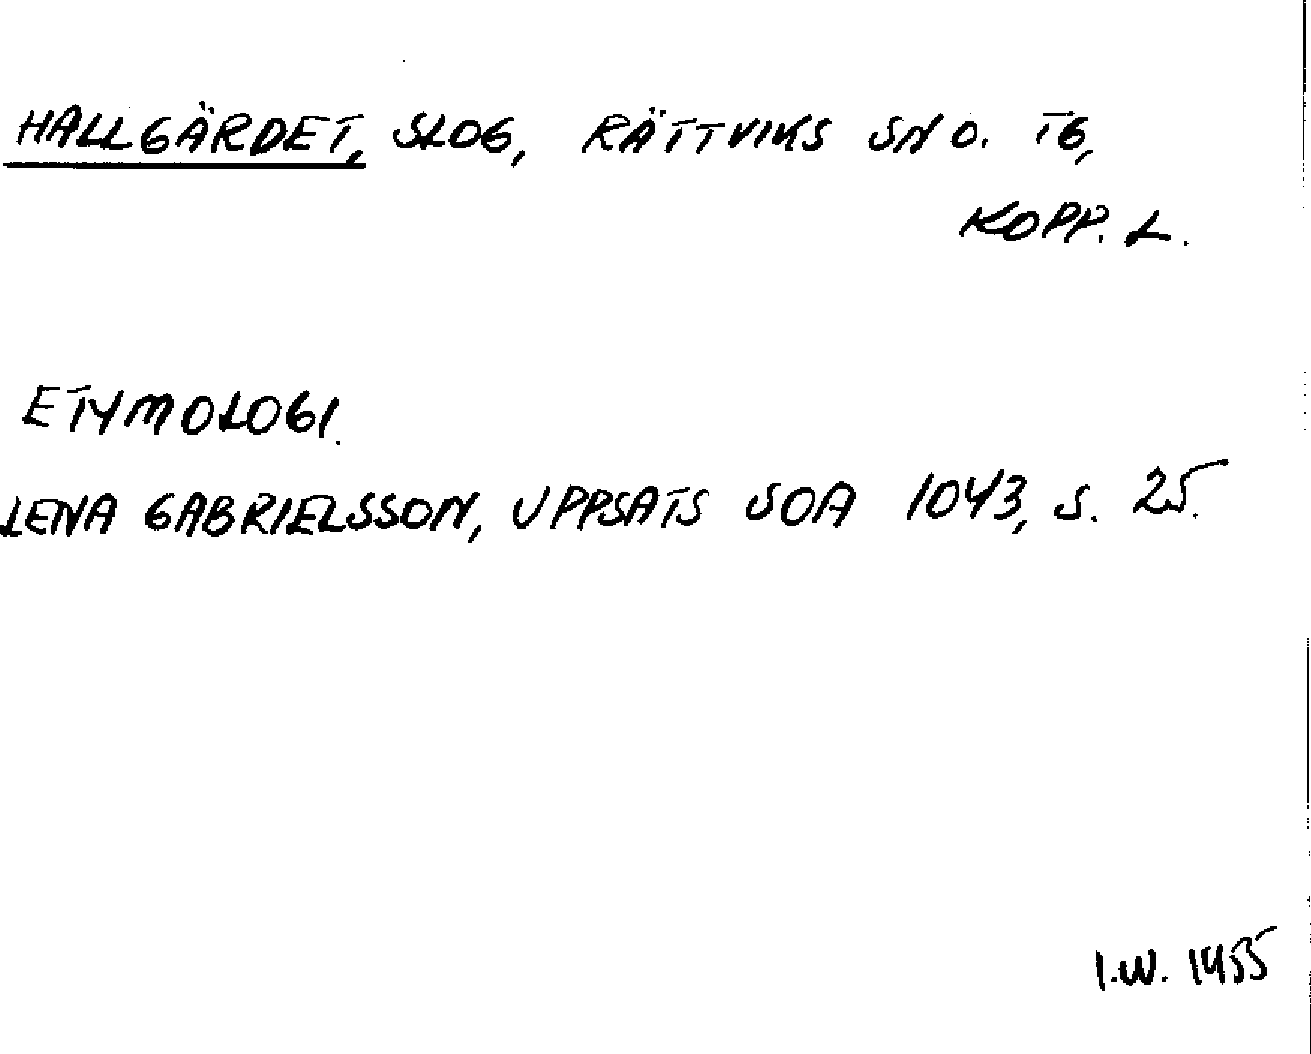 HALLGÄRDET, SLOG, RÄTTVIKS SN O. TG,
KOPP. L.
ETYMOLOGI.
LENA GABRIELSSON, UPPSATS SOA 1043, S. 25.
I.W. 1955